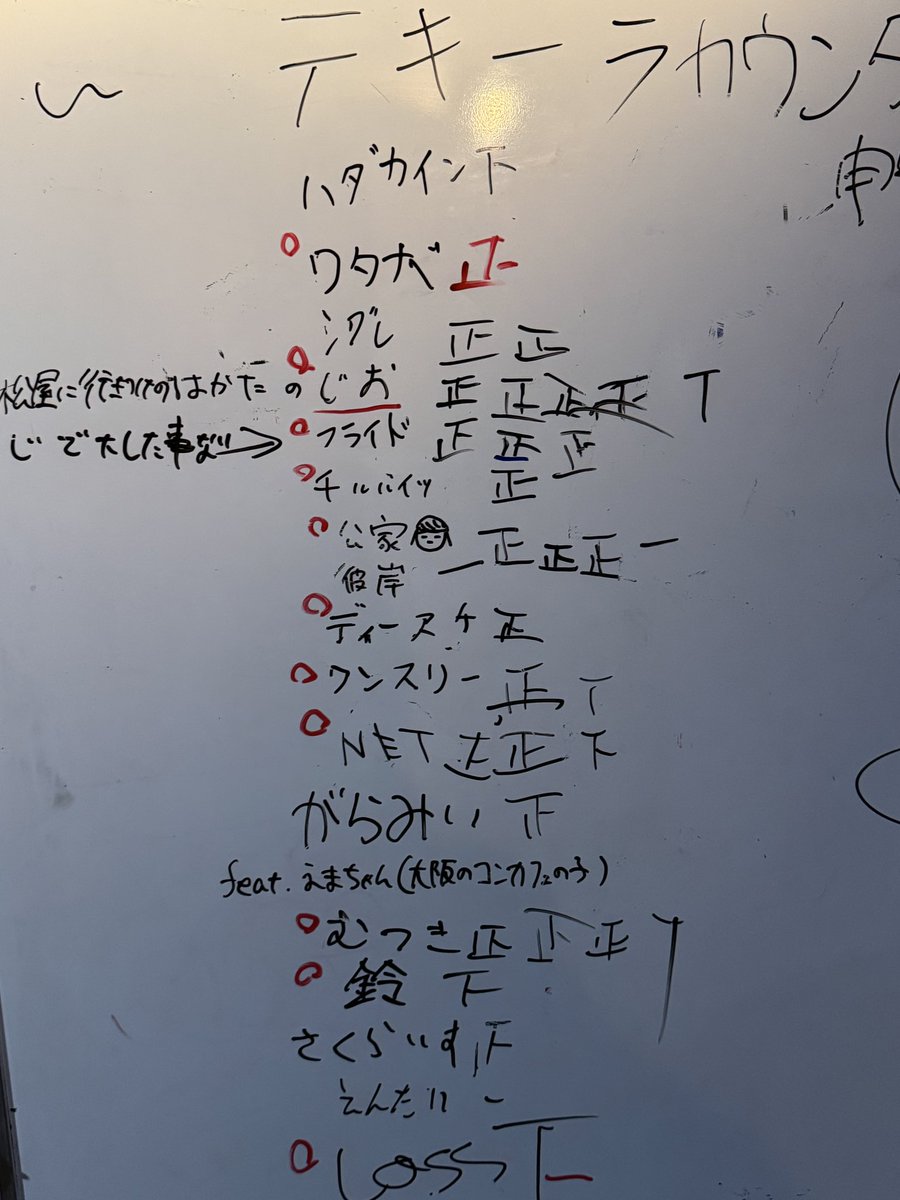 テキーラカウンタ
ハダカイン 下
ワタナベ 正
シグレ 正 正
松屋に行きつけのはかたの じお 正 正 正 正 T
じで大した事ない→ フライド 正 正 正
チルバイツ 正
公家 一 正 正 正 一
彼岸
ディースケ 正
ワンスリー 正 T
NET 正 正 下
がらみい 正
feat. えまちゃん(大阪のコンカフェの子)
むつき 正 正 正
鈴 下
さくらいす 正
えんだい 一
LOSS